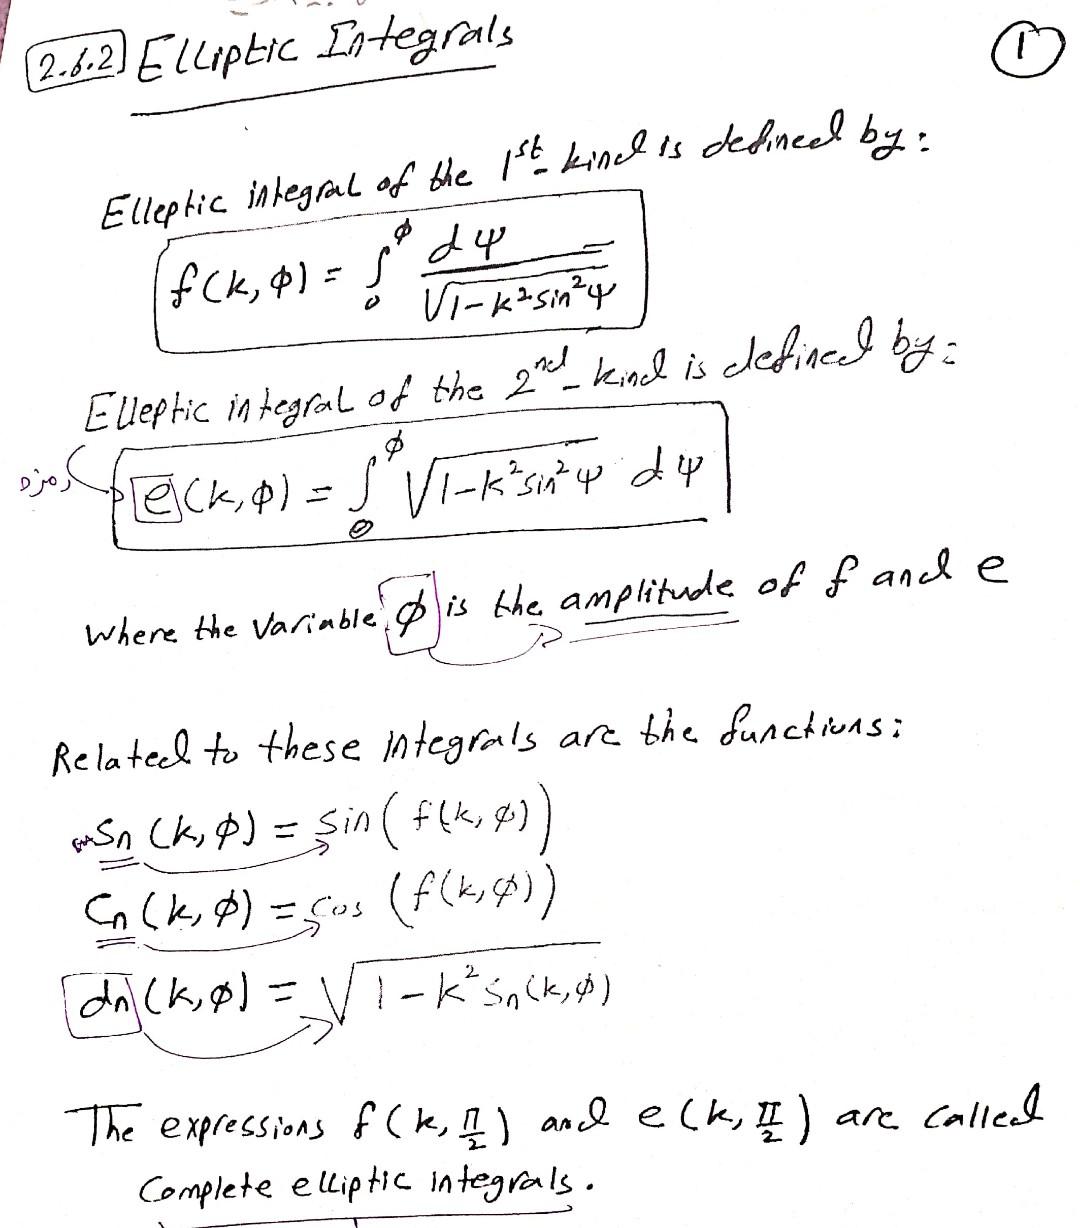 2.6.2 Elliptic Integrals
1
Elleptic integral of the 1st- kind is defined by:
f(k, φ) = ∫₀^φ dψ / √(1-k²sin²ψ)
Elleptic integral of the 2nd- kind is defined by:
رمزه
e(k, φ) = ∫₀^φ √(1-k²sin²ψ) dψ
where the variable φ is the amplitude of f and e
Related to these integrals are the functions:
Sn (k, φ) = sin ( f(k, φ))
Cn (k, φ) = cos (f(k, φ))
dn (k, φ) = √(1-k²Sn(k, φ))
The expressions f(k, π/2) and e(k, π/2) are called
Complete elliptic integrals.